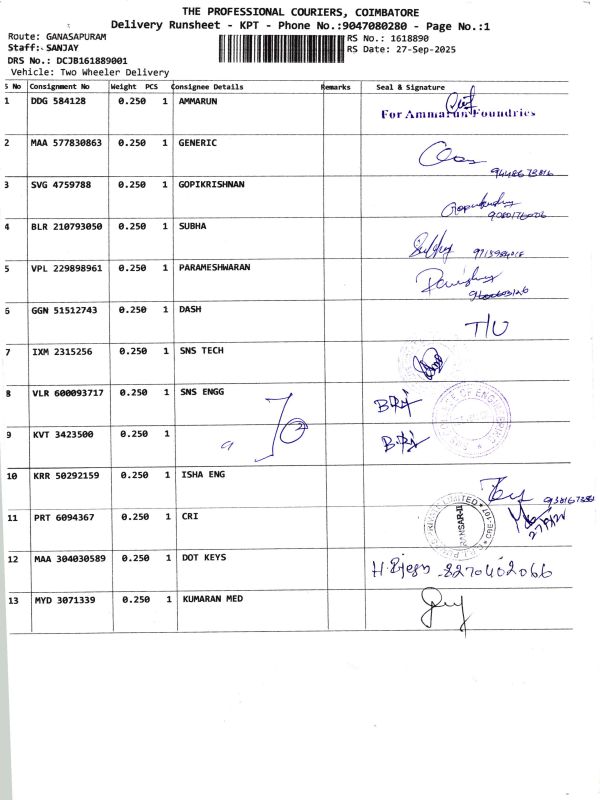 THE PROFESSIONAL COURIERS, COIMBATORE
Delivery Runsheet - KPT - Phone No.:9047080280 - Page No.:1
Route: GANASAPURAM
RS No.: 1618890
Staff: SANJAY
RS Date: 27-Sep-2025
DRS No.: DCJB161889001
Vehicle: Two Wheeler Delivery
S No Consignment No Weight PCS Consignee Details Remarks Seal & Signature
1 DDG 584128 0.250 1 AMMARUN
For Ammarun Foundries
2 MAA 577830863 0.250 1 GENERIC
3 SVG 4759788 0.250 1 GOPIKRISHNAN
4 BLR 210793050 0.250 1 SUBHA
5 VPL 229898961 0.250 1 PARAMESHWARAN
6 GGN 51512743 0.250 1 DASH
T/U
7 IXM 2315256 0.250 1 SNS TECH
8 VLR 600093717 0.250 1 SNS ENGG
9 KVT 3423500 0.250 1
10 KRR 50292159 0.250 1 ISHA ENG
11 PRT 6094367 0.250 1 CRI
12 MAA 304030589 0.250 1 DOT KEYS
8270402066
13 MYD 3071339 0.250 1 KUMARAN MED